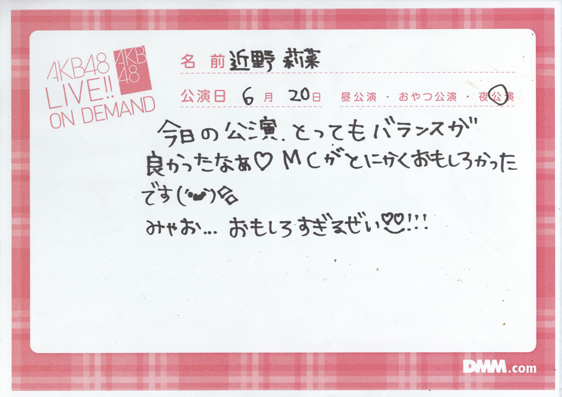 AKB48
LIVE!!
ON DEMAND
AKB
48
名 前 近野 莉菜
公演日 6 月 20 日 昼公演 ・ おやつ公演 ・ 夜公演
今日の公演、とってもバランスが
良かったなぁ♡ MCがとにかくおもしろかった
です
みゃお... おもしろすぎるぜい!!!
DMM.com